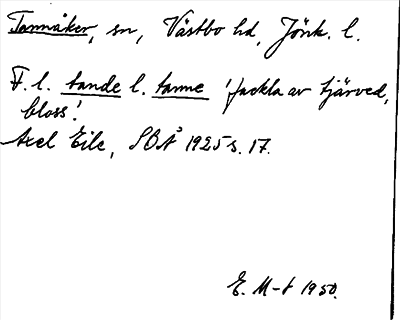 Tannåker, sn, Västbo hd, Jönk. l.
F. l. tande l. tanne 'fackla av tjärved,
bloss'.
Axel Eile, SBÅ 1925 s. 17.
E. M-t 1950.